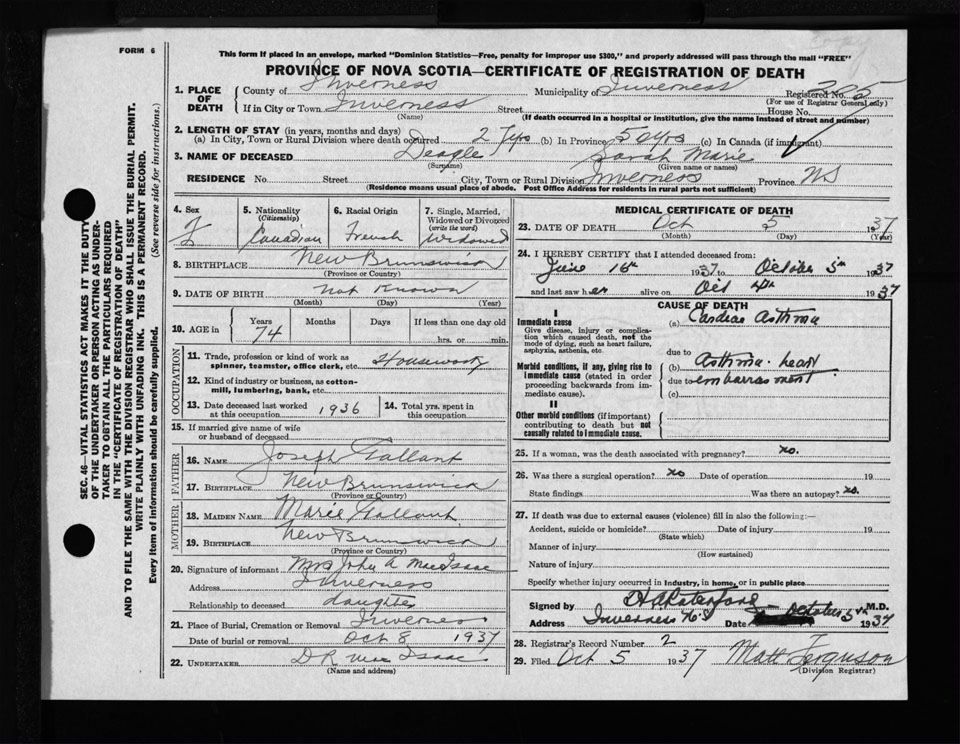 FORM 6
This form if placed in an envelope, marked "Dominion Statistics—Free, penalty for improper use $300," and properly addressed will pass through the mail "FREE"
PROVINCE OF NOVA SCOTIA—CERTIFICATE OF REGISTRATION OF DEATH
1. PLACE OF DEATH
County of Inverness Municipality of Inverness Registered No.
(For use of Registrar General only)
If in City or Town Inverness Street House No.
(Name) (If death occurred in a hospital or institution, give the name instead of street and number)
2. LENGTH OF STAY (in years, months and days)
(a) In City, Town or Rural Division where death occurred 27yrs (b) In Province 50yrs (c) In Canada (if immigrant)
3. NAME OF DECEASED Deagle Sarah Marie
(Surname) (Given name or names)
RESIDENCE No. Street City, Town or Rural Division Inverness Province NS
(Residence means usual place of abode. Post Office Address for residents in rural parts not sufficient)
4. Sex
F
5. Nationality
(Citizenship)
Canadian
6. Racial Origin
French
7. Single, Married, Widowed or Divorced
(write the word)
Widowed
8. BIRTHPLACE New Brunswick
(Province or Country)
9. DATE OF BIRTH Not Known
(Month) (Day) (Year)
10. AGE in
Years Months Days If less than one day old
74 hrs. or min.
OCCUPATION
11. Trade, profession or kind of work as spinner, teamster, office clerk, etc. Housework
12. Kind of industry or business, as cotton-mill, lumbering, bank, etc.
13. Date deceased last worked at this occupation 1936
14. Total yrs. spent in this occupation
15. If married give name of wife or husband of deceased
FATHER
16. NAME Joseph Gallant
17. BIRTHPLACE New Brunswick
(Province or Country)
MOTHER
18. MAIDEN NAME Marie Gallant
19. BIRTHPLACE New Brunswick
(Province or Country)
20. Signature of informant Mrs John A MacIsaac
Address Inverness
Relationship to deceased daughter
21. Place of Burial, Cremation or Removal Inverness
Date of burial or removal Oct 8 1937
22. UNDERTAKER D R Mac Isaac
(Name and address)
MEDICAL CERTIFICATE OF DEATH
23. DATE OF DEATH Oct 5 1937
(Month) (Day) (Year)
24. I HEREBY CERTIFY that I attended deceased from:
June 16th 1937 to October 5th 1937
and last saw her alive on Oct 4th 1937
CAUSE OF DEATH
I
Immediate cause
Give disease, injury or complication which caused death, not the mode of dying, such as heart failure, asphyxia, asthenia, etc.
(a) Cardiac Asthma
due to
Morbid conditions, if any, giving rise to immediate cause (stated in order proceeding backwards from immediate cause).
(b) Asthma - heart
due to embarrasment
(c)
II
Other morbid conditions (if important) contributing to death but not causally related to immediate cause.
25. If a woman, was the death associated with pregnancy? no.
26. Was there a surgical operation? no Date of operation 19
State findings Was there an autopsy? no.
27. If death was due to external causes (violence) fill in also the following:—
Accident, suicide or homicide? Date of injury 19
(State which)
Manner of injury
(How sustained)
Nature of injury
Specify whether injury occurred in industry, in home, or in public place
Signed by M.D.
Address Inverness N.S Date October 5th 1937
28. Registrar's Record Number 2
29. Filed Oct 5 1937 Matt Ferguson
(Division Registrar)
SEC. 46—VITAL STATISTICS ACT MAKES IT THE DUTY
OF THE UNDERTAKER OR PERSON ACTING AS UNDER-
TAKER TO OBTAIN ALL THE PARTICULARS REQUIRED
IN THE "CERTIFICATE OF REGISTRATION OF DEATH"
AND TO FILE THE SAME WITH THE DIVISION REGISTRAR WHO SHALL ISSUE THE BURIAL PERMIT.
WRITE PLAINLY WITH UNFADING INK. THIS IS A PERMANENT RECORD.
Every item of information should be carefully supplied. (See reverse side for instructions.)